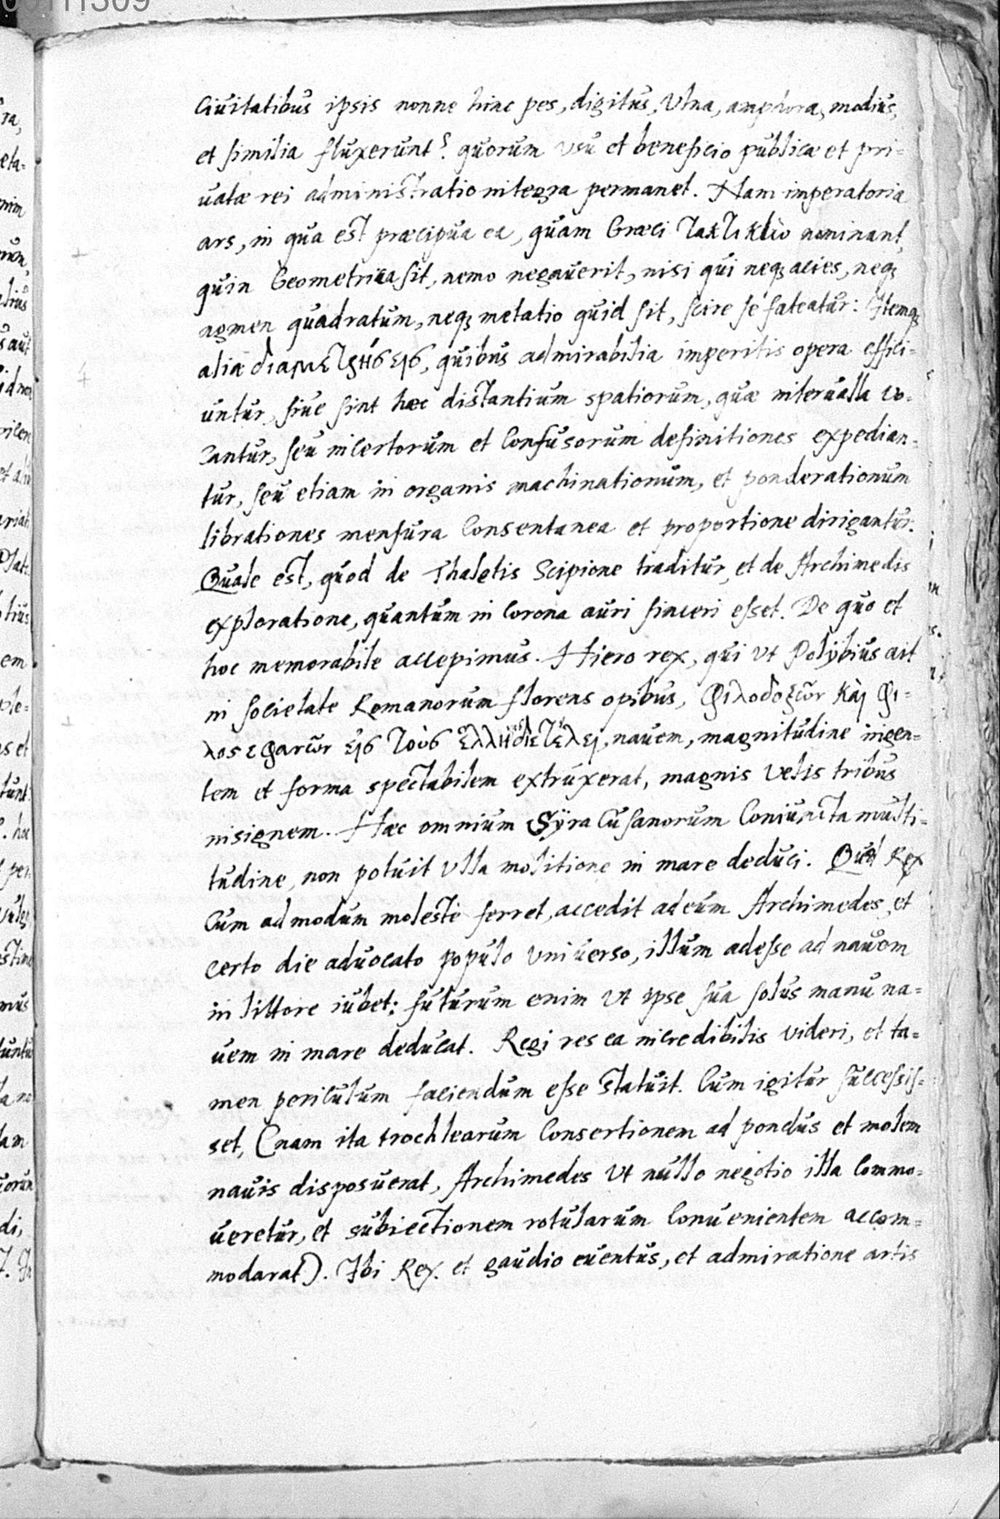 Ciuitatibus ipsis nonne hinc pes, digitus, Vlna, amphora, modius,
et similia fluxerunt? quorum vsu et beneficio publicæ et pri=
uatæ rei administratio integra permanet. Nam imperatoria
ars, in qua est præcipua ea, quam Græci τακτικὼ nominant,
quin Geometrica sit, nemo negauerit, nisi qui neq; acies, neq;
agmen quadratum, neq; metatio quid sit, scire se fateatur: Itemq;
alia διαμετρήσεις, quibus admirabilia imperitis opera effici=
untur, siue sint hæc distantium spatiorum, quæ interualla vo=
cantur, seu incertorum et confusorum definitiones expedian=
tur, seu etiam in organis machinationum, et ponderationum
librationes mensura consentanea et proportione dirigantur.
Quale est, quod de Thaletis Scipione traditur, et de Archimedis
exploratione, quantum in corona auri sinceri esset. De quo et
hoc memorabile accepimus. Hiero rex, qui vt Polybius ait
in societate Romanorum florens opibus, φιλοδοξῶν καὶ φι=
λοστεφανῶν εἰς τοὺς ἕλληνας διετέλει, nauem, magnitudine ingen=
tem et forma spectabilem extruxerat, magnis velis tribus
insignem. Hæc omnium Syracusanorum coniuncta multi=
tudine, non potuit vlla molitione in mare deduci. Quod Rex
cum admodum moleste ferret, accedit ad eum Archimedes, et
certo die aduocato populo vniuerso, illum adesse ad nauem
in littore iubet: futurum enim vt ipse sua solus manu na=
uem in mare deducat. Regi res ea incredibilis videri, et ta=
men periculum faciendum esse statuit. Cum igitur successis=
set, (nam ita trochlearum consertionem ad pondus et molem
nauis disposuerat, Archimedes vt nullo negotio illa commo=
ueretur, et subiectionem rotularum conuenientem accom=
modarat). Ibi Rex et gaudio euentus, et admiratione artis